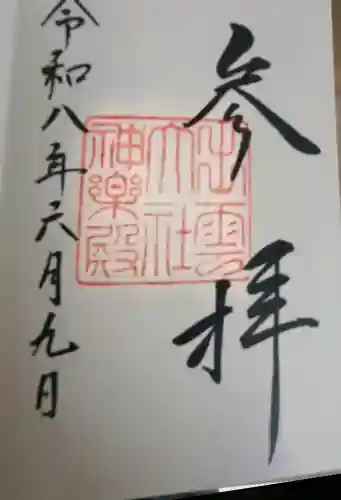 参拝
出雲
大社
神楽殿
令和八年六月九日